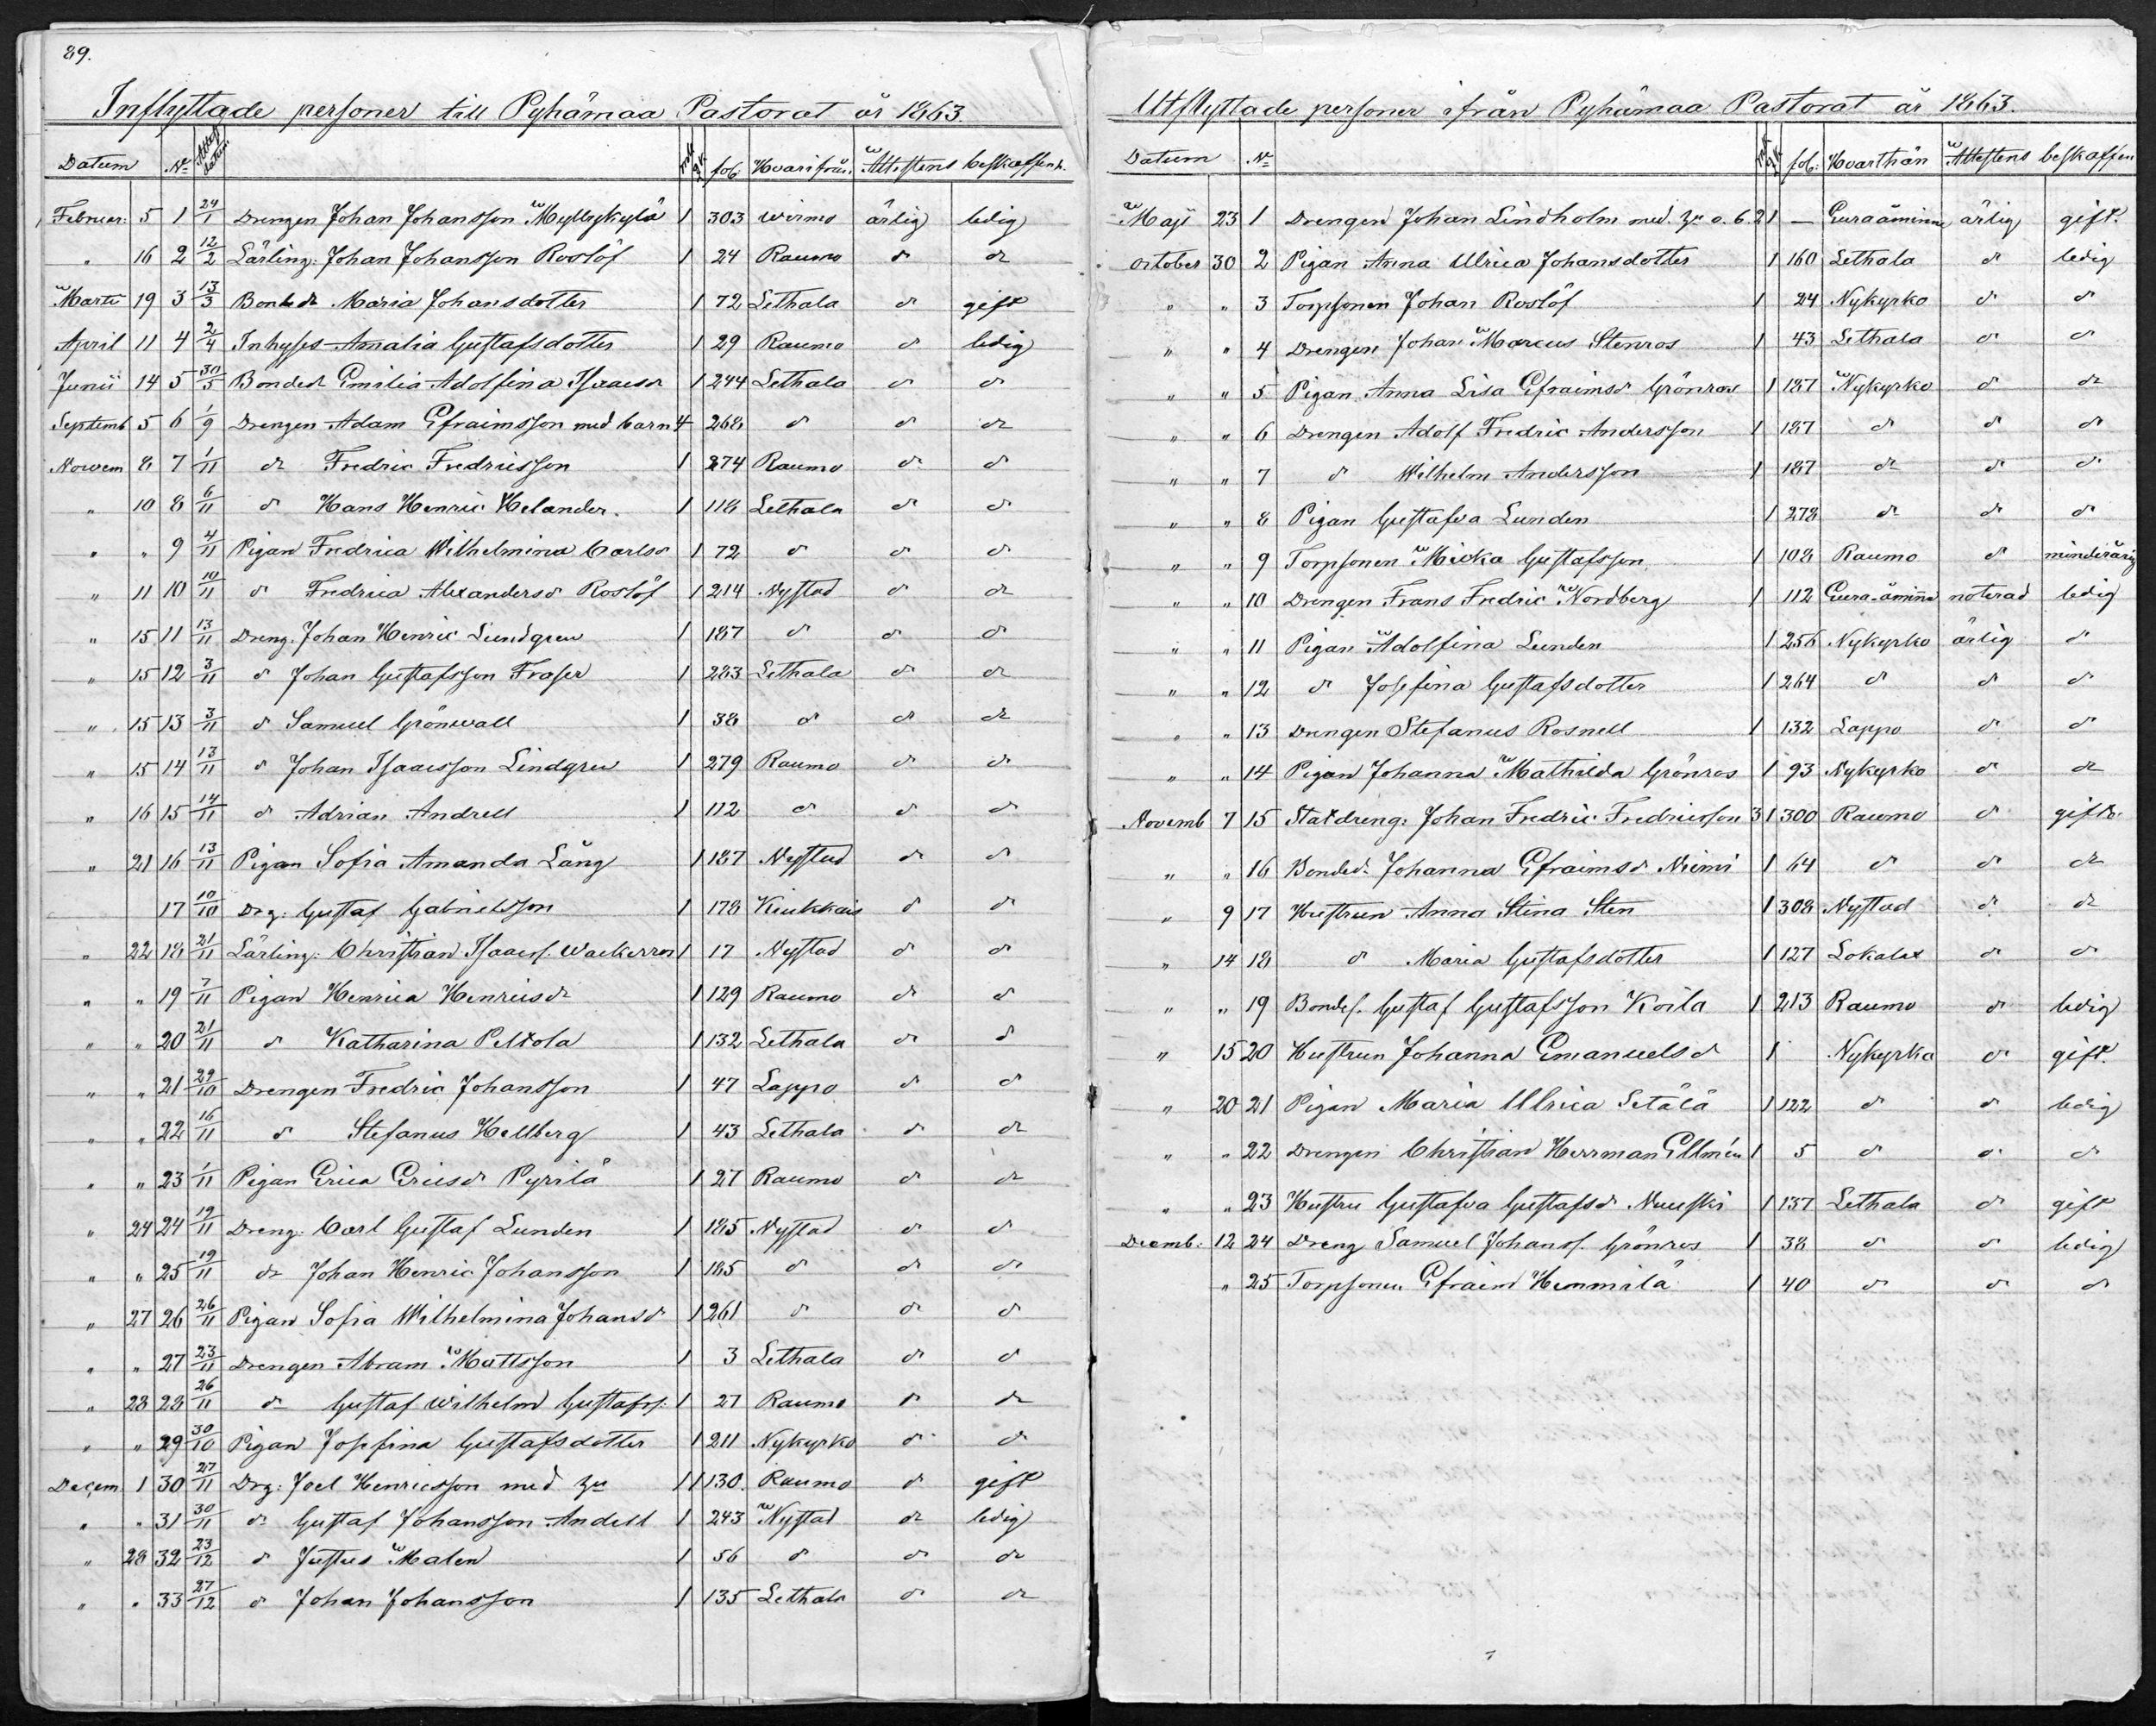 89.
Inflyttade personer till Pyhämaa Pastorat år 1863
Datum N:o Attest datum m.k. q.k. fol: Hvarifrån. Attestens beskaffenh.
Februar: 5 1 24/1 Drengen Johan Johansson Myllykylä 1 303 Wirmo ärlig ledig
" 16 2 12/2 Lärling: Johan Johansson Roslöf 1 24 Raumo d:o d:o
Martii 19 3 13/3 Bonde d:r Maria Johansdotter 1 72 Lethala d:o gift
April 11 4 2/4 Inhyses Amalia Gustafsdotter 1 29 Raumo d:o ledig
Junii 14 5 30/5 Bonded:r Emilia Adolfina Isaacsd:r 1 244 Lethala d:o d:o
Septemb 5 6 1/9 Drengen Adam Efraimsson med barn 4 268 d:o d:o d:o
Novem 8 7 1/11 d:o Fredric Fredricsson 1 274 Raumo d:o d:o
" 10 8 6/11 d:o Hans Henric Helander. 1 118 Lethala d:o d:o
" " 9 4/11 Pigan Fredrica Wilhelmina Carlsd:r 1 72 d:o d:o d:o
" 11 10 10/11 d:o Fredrica Alexandersd:r Roslöf 1 214 Nystad d:o d:o
" 15 11 13/11 Dreng. Johan Henric Lundgren 1 187 d:o d:o d:o
" 15 12 3/11 d:o Johan Gustafsson Fraser 1 283 Lethala d:o d:o
" 15 13 3/11 d:o Samuel Grönwall 1 38 d:o d:o d:o
" 15 14 13/11 d:o Johan Isaacsson Lindgren 1 279 Raumo d:o d:o
" 16 15 14/11 d:o Adrian Andrell 1 112 d:o d:o d:o
" 21 16 13/11 Pigan Sofia Amanda Lång 1 187 Nystad d:o d:o
17 10/10 Drg: Gustaf Gabrielsson 1 178 Kiukkais d:o d:o
" 22 18 21/11 Lärling: Christian Isaacss. Wackerros 1 17 Nystad d:o d:o
" " 19 7/11 Pigan Henrica Henricsd:r 1 129 Raumo d:o d:o
" " 20 21/11 d:o Katharina Peltola 1 132 Lethala d:o d:o
" " 21 29/10 Drengen Fredric Johansson 1 47 Lappo d:o d:o
" " 22 16/11 d:o Stefanus Hellberg 1 43 Lethala d:o d:o
" " 23 1/11 Pigan Erica Ericsd:r Pyrilä 1 27 Raumo d:o d:o
" 24 24 19/11 Dreng: Carl Gustaf Lunden 1 185 Nystad d:o d:o
" " 25 19/11 d:o Johan Henric Johansson 1 185 d:o d:o d:o
" 27 26 26/11 Pigan Sofia Wilhelmina Johansd:r 1 261 d:o d:o d:o
" " 27 23/11 Drengen Abram Mattsson 1 3 Lethala d:o d:o
" 28 28 26/11 d:o Gustaf Wilhelm Gustafss: 1 27 Raumo d:o d:o
" " 29 30/10 Pigan Josefina Gustafsdotter 1 211 Nykyrko d:o d:o
Decem 1 30 27/11 Drg: Joel Henricsson med hu 1 1 130. Raumo d:o gift
" " 31 30/11 d:o Gustaf Johansson Andell 1 243 Nystad d:o ledig
" 28 32 23/12 d:o Justus Malen 1 56 d:o d:o d:o
" " 33 27/12 d:o Johan Johansson 1 135 Lethala d:o d:o
Utflyttade personer ifrån Pyhämaa Pastorat år 1863.
Datum N:o m.k. q.k. fol: Hvarthän Attestens beskaffen
Maji 23 1 Drengen Johan Lindholm med. hu o. b. 2 1 — Euraåminne ärlig gift.
October 30 2 Pigan Anna Ulrica Johansdotter 1 160 Lethala d:o ledig
" " 3 Torpsonen Johan Roslöf 1 24 Nykyrko d:o d:o
" " 4 Drengen Johan Marcus Stenros 1 43 Lethala d:o d:o
" " 5 Pigan Anna Lisa Efraimsd:r Grönros 1 187 Nykyrko d:o d:o
" " 6 Drengen Adolf Fredric Andersson 1 187 d:o d:o d:o
" " 7 d:o Wilhelm Andersson 1 187 d:o d:o d:o
" " 8 Pigan Gustafva Lunden 1 278 d:o d:o d:o
" " 9 Torpsonen Micka Gustafsson 1 108 Raumo d:o minderårig
" " 10 Drengen Frans Fredric Nordberg 1 112 Euraåminne noterad ledig
" " 11 Pigan Adolfina Lunden 1 256 Nykyrko ärlig d:o
" " 12 d:o Josefina Gustafsdotter 1 264 d:o d:o d:o
" " 13 Drengen Stefanus Rosnell 1 132 Lappo d:o d:o
" " 14 Pigan Johanna Mathilda Grönros 1 93 Nykyrko d:o d:o
Novemb 7 15 Statdreng: Johan Fredric Fredricsson 3 1 300 Raumo d:o gift.
" " 16 Bonded:r Johanna Efraimsd:r Niemi 1 64 d:o d:o d:o
" 9 17 Hustrun Anna Stina Sten 1 308 Nystad d:o d:o
" 14 18 d:o Maria Gustafsdotter 1 127 Lokalax d:o d:o
" " 19 Bondes. Gustaf Gustafsson Koila 1 213 Raumo d:o ledig
" 15 20 Hustrun Johanna Emanuelsd:r 1 Nykyrka d:o gift.
" 20 21 Pigan Maria Ulrica Setälä 1 122 d:o d:o ledig
" " 22 Drengen Christian Herrman Ellmén 1 5 d:o d:o d:o
" " 23 Hustru Gustafva Gustafsd:r Nuuski 1 137 Lethala d:o gift
Decemb: 12 24 Dreng Samuel Johanss. Grönros 1 38 d:o d:o ledig
" 25 Torpsonen Efraim Hemmilä 1 40 d:o d:o d:o